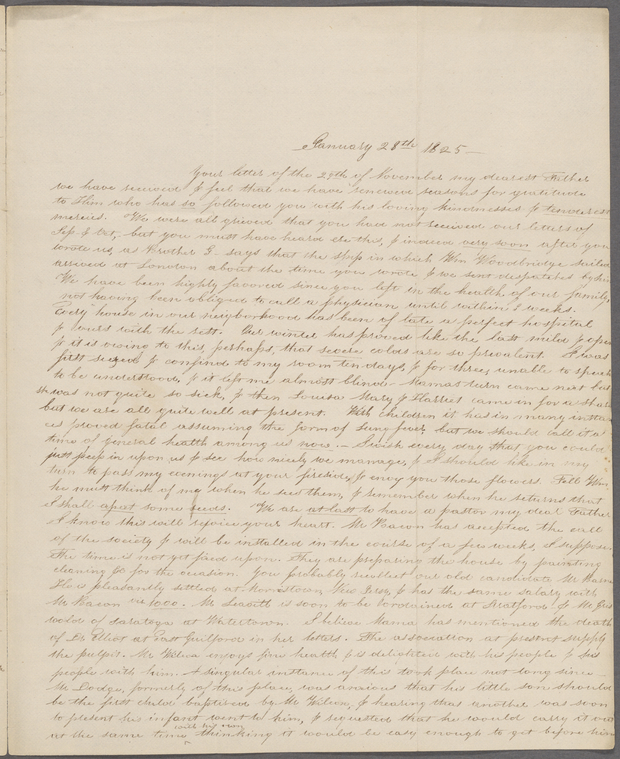 January 28th 1825 —
Your letter of the 29th of November my dearest Father
we have received & feel that we have renewed reasons for gratitude
to Him who has so followed you with his loving kindnesses & tenderest
mercies. We were all grieved that you had not received our letters of
Sep. & Oct., but you must have heard ere this, & indeed very soon after you
wrote us, as Brother G. says that the ship in which Wm Woodbridge sailed
arrived at London about the time you wrote & we sent despatches by him
We have been highly favored since you left in the health of our family,
not having been obliged to call a physician until within 5 weeks.
Every house in our neighborhood has been of late a perfect hospital
& ours with the rest. Our winter has proved like the last mild & open
& it is owing to this, perhaps, that severe colds are so prevalent. I was
first seized & confined to my room ten days, & for three, unable to speak
to be understood, & it left me almost blind. Mamas turn came next but
she was not quite so sick, & then Louisa Mary & Harriet came in for a share
but we are all quite well at present. With children it has in many instan
ces proved fatal assuming the form of lung fever, but we should call it a
time of general health among us now. — I wish every day that you could
just peep in upon us & see how nicely we manage, & I should like in my
turn to pass my evenings at your fireside, & envy you those flowers. Tell Wm
he must think of me when he sees them, & remember when he returns that
I shall expect some seeds. We are at last to have a pastor my dear Father
& I know this will rejoice your heart. Mr Bacon has accepted the call
of the society & will be installed in the course of a few weeks, I suppose
the time is not yet fixed upon. They are preparing the house by painting
cleaning &c for the occasion. You probably recollect our old candidate Mr
He is pleasantly settled at Morristown New Jersey, & has the same salary with
Mr Bacon viz 1000. Mr Leavitt is soon to be ordained at Stratford & Mr Gris
wold of Saratoga at Watertown. I believe Mama has mentioned the death
of Dr Elliot at East Guilford in her letters. The association at present supply
the pulpit. Mr Wilson enjoys fine health & is delighted with his people & his
people with him. A singular instance of this took place not long since
Mr Lodge, formerly of this place, was anxious that his little son should
be the first child baptised by Mr Wilson, & hearing that another was soon
to present his infant went to him, & requested that he would carry it
with his own
at the same time, thinking it would be easy enough to get before him